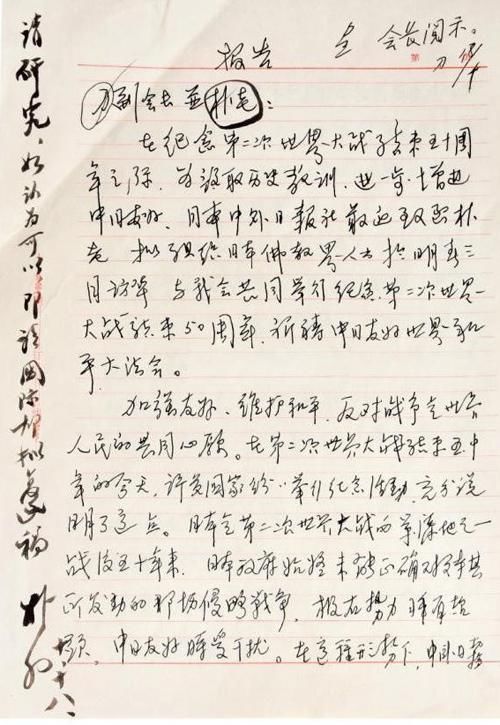 呈 会长阅示。
报告
刀副会长并朴老：
在纪念第二次世界大战结束五十周
年之际，为汲取历史教训，进一步增进
中日友好，日本中外日报社
老 拟组织日本佛教界人士于明春三
月访华 与我会共同举行纪念第二次世界
大战结束50周年，祈祷中日友好世界和
平大法会。
加强友好、维护和平、反对战争是世界
人民的共同心愿。在第二次世界大战结束五十
年的今天，许多国家纷纷举行纪念活动，充分说
明了这点。日本是第二次世界大战的策源地之一
战后五十年来，日本政府始终未能正确对待其
所发动的那场侵略战争，极右势力时有抬
头，中日友好时受干扰。在这种形势下，中外日报
请研究，如认为可以，即请国际部拟复稿
朴初
十八